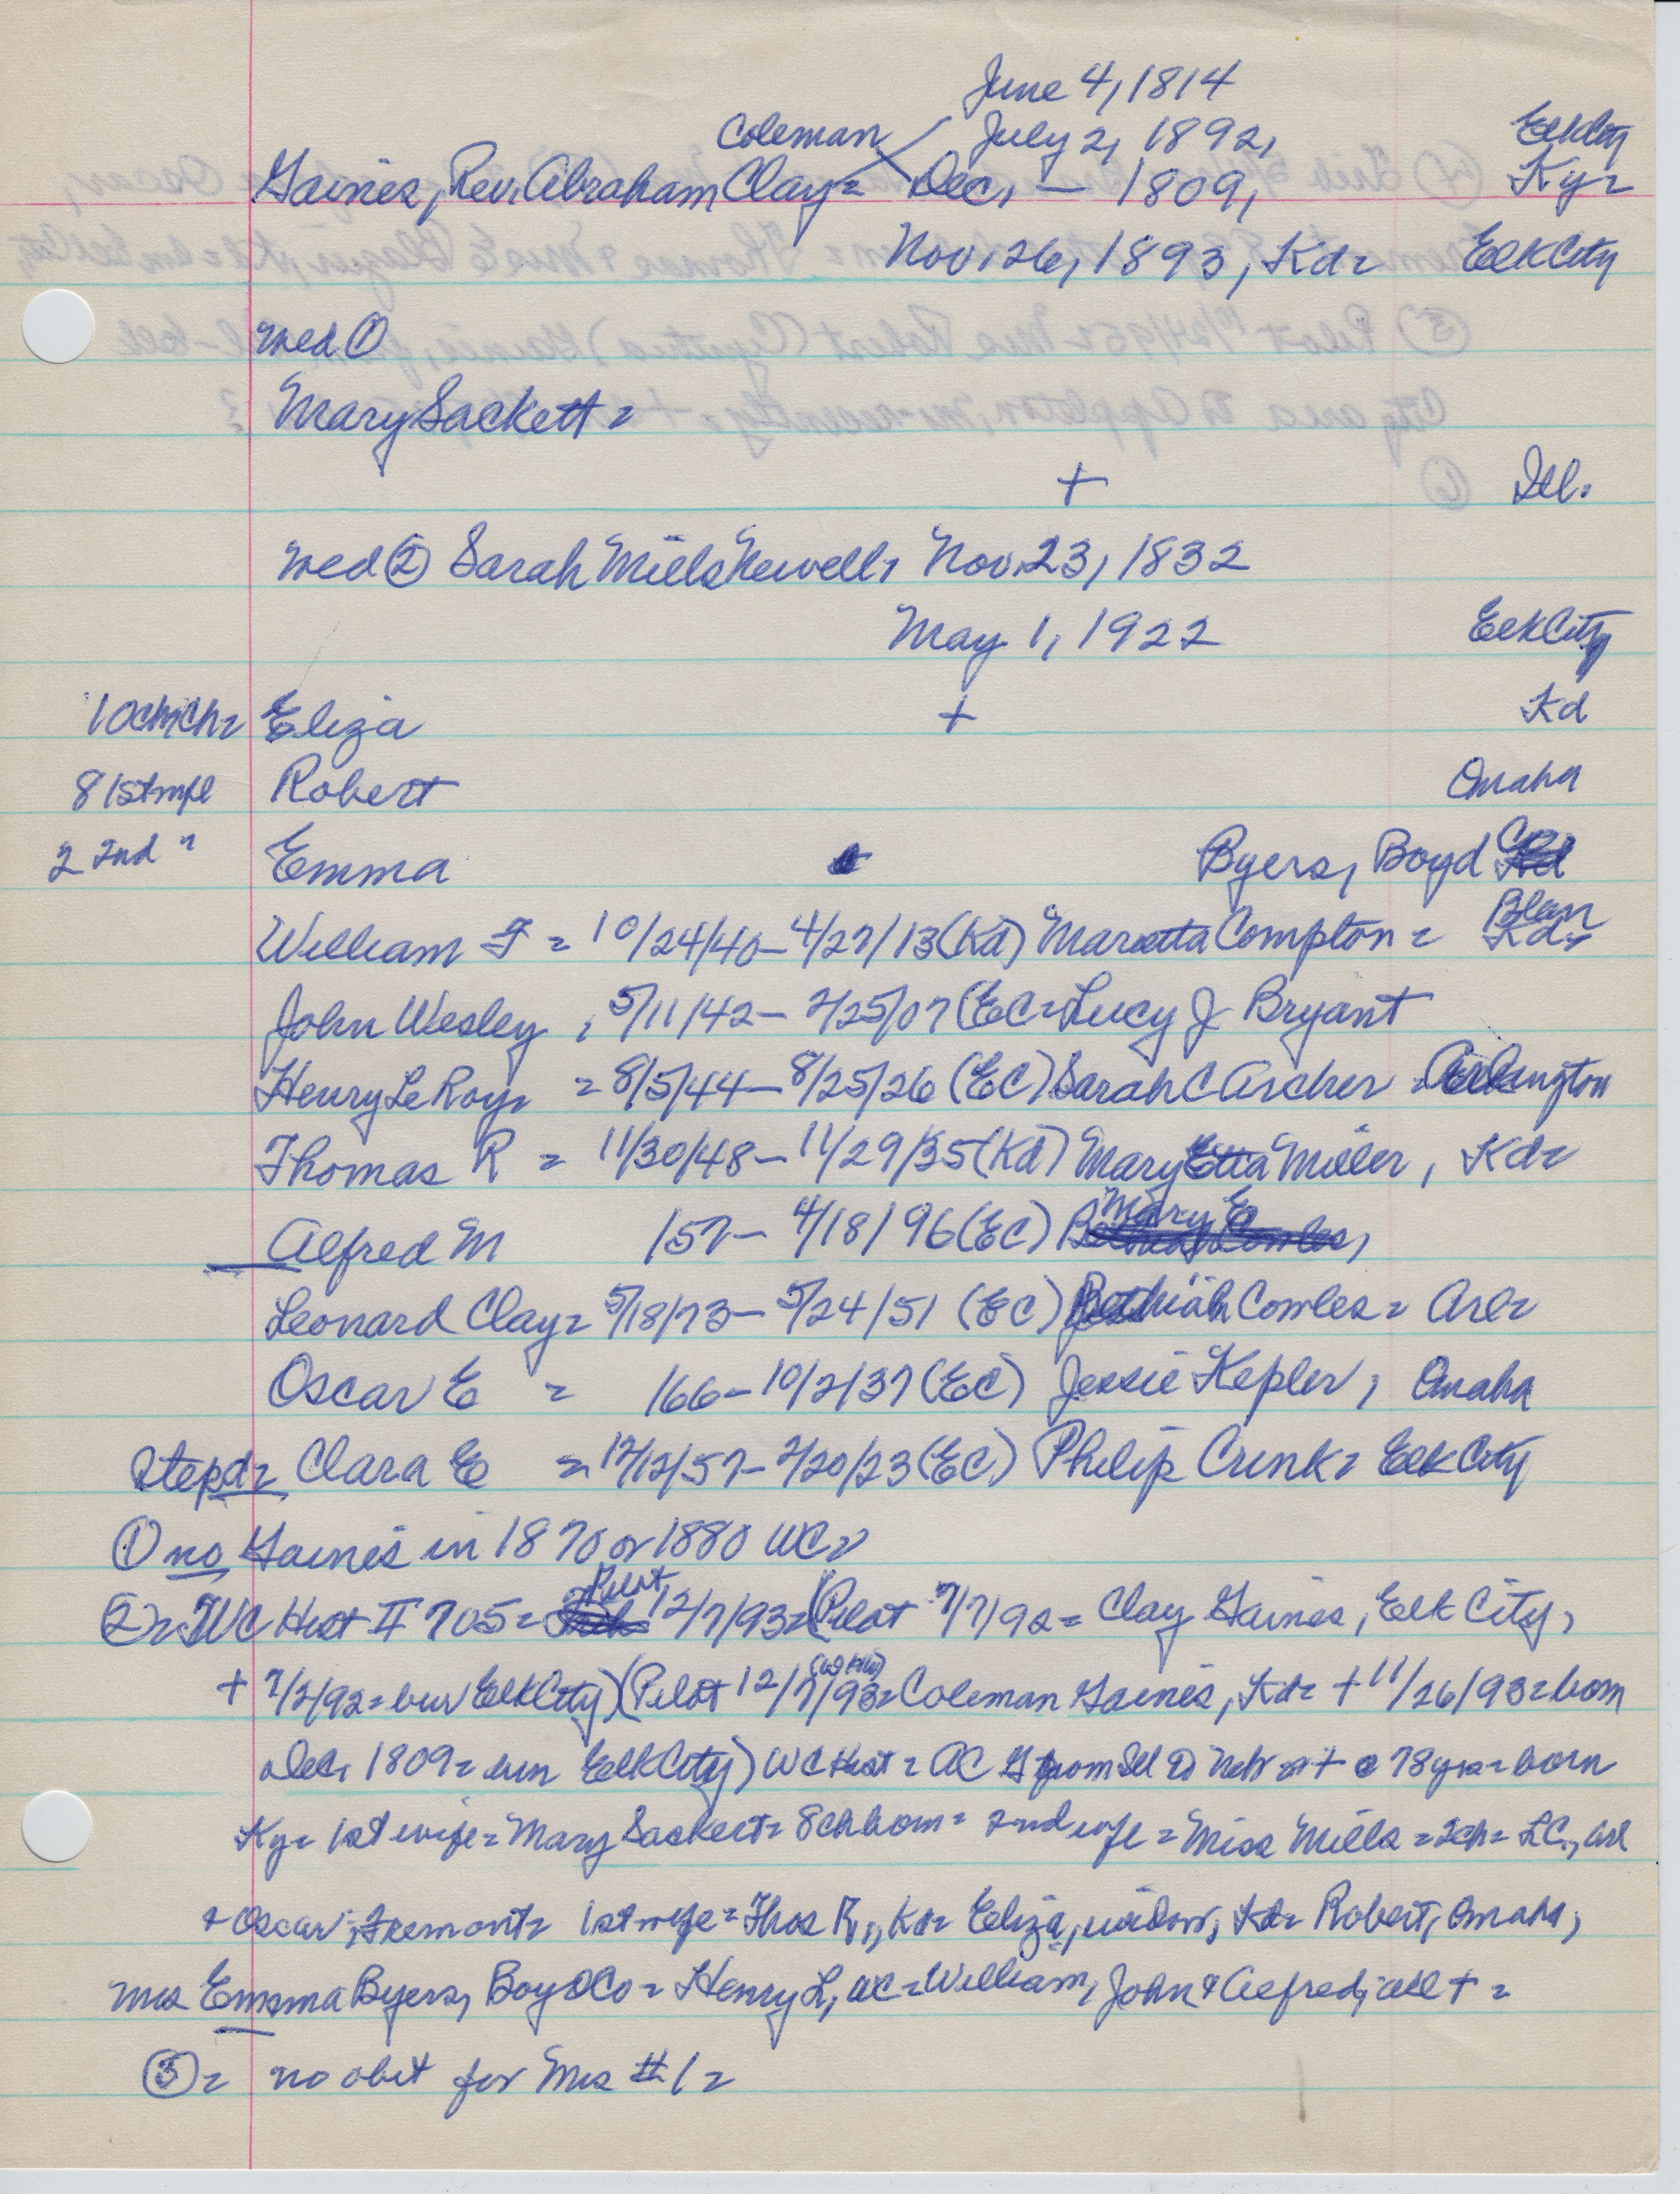 June 4, 1814
Coleman July 2, 1892, Elk City
Gaines, Rev. Abraham Clay = Dec, — 1809, Ky =
Nov. 26, 1893, Kd = Elk City
wed ①
Mary Sackett =
+ Ill.
wed ② Sarah Mills Newell, Nov. 23, 1832
May 1, 1922 Elk City
10 ch Eliza + Kd
8 1st wife Robert Omaha
2 2nd " Emma Byers, Boyd Co
William F = 10/24/40 — 4/27/13 (Kd) Maretta Compton = Blair Kd =
John Wesley, 5/11/42 — 2/25/07 (EC = Lucy J Bryant
Henry LeRoy = 8/5/44 — 8/25/26 (EC) Sarah C Archer = Arlington
Thomas R = 11/30/48 — 11/29/35 (Kd) Mary Etta Miller, Kd =
Alfred M /57 — 4/18/96 (EC) Mary E
Leonard Clay = 5/18/73 — 5/24/51 (EC) Bethiah Cowles = Arl =
Oscar E = /66 — 10/2/37 (EC) Jessie Kepler, Omaha
Stepd = Clara E = 12/12/57 — 2/20/23 (EC) Philip Crink = Elk City
① no Gaines in 1870 or 1880 WC =
② = WC Hist II 705 = Pilot 12/7/93 = (Pilot 7/7/92 = Clay Gaines, Elk City,
+ 7/2/92 = bur Elk City) (Pilot 12/7/93 = Coleman Gaines, Kd = + 11/26/93 = born
Dec, 1809 = bur Elk City) WC Hist = AC G from Ill to Neb + @ 78 yrs = born
Ky = 1st wife = Mary Sackett = 8 ch born = 2nd wife = Miss Mills = 2 ch = LC, Arl
& Oscar, Fremont = 1st wife = Thos R, Kd = Eliza, widow, Kd = Robert, Omaha,
Mrs Emma Byers, Boyd Co = Henry L, WC = William, John & Alfred, all + =
③ = no obit for Mrs #1 =